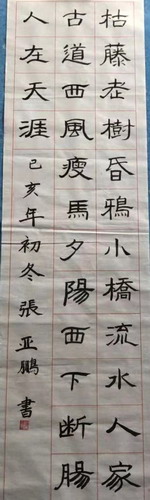 枯藤老樹昏鴉小橋流水人家
古道西風瘦馬夕陽西下断腸
人在天涯 己亥年初冬 張亚鵬 書